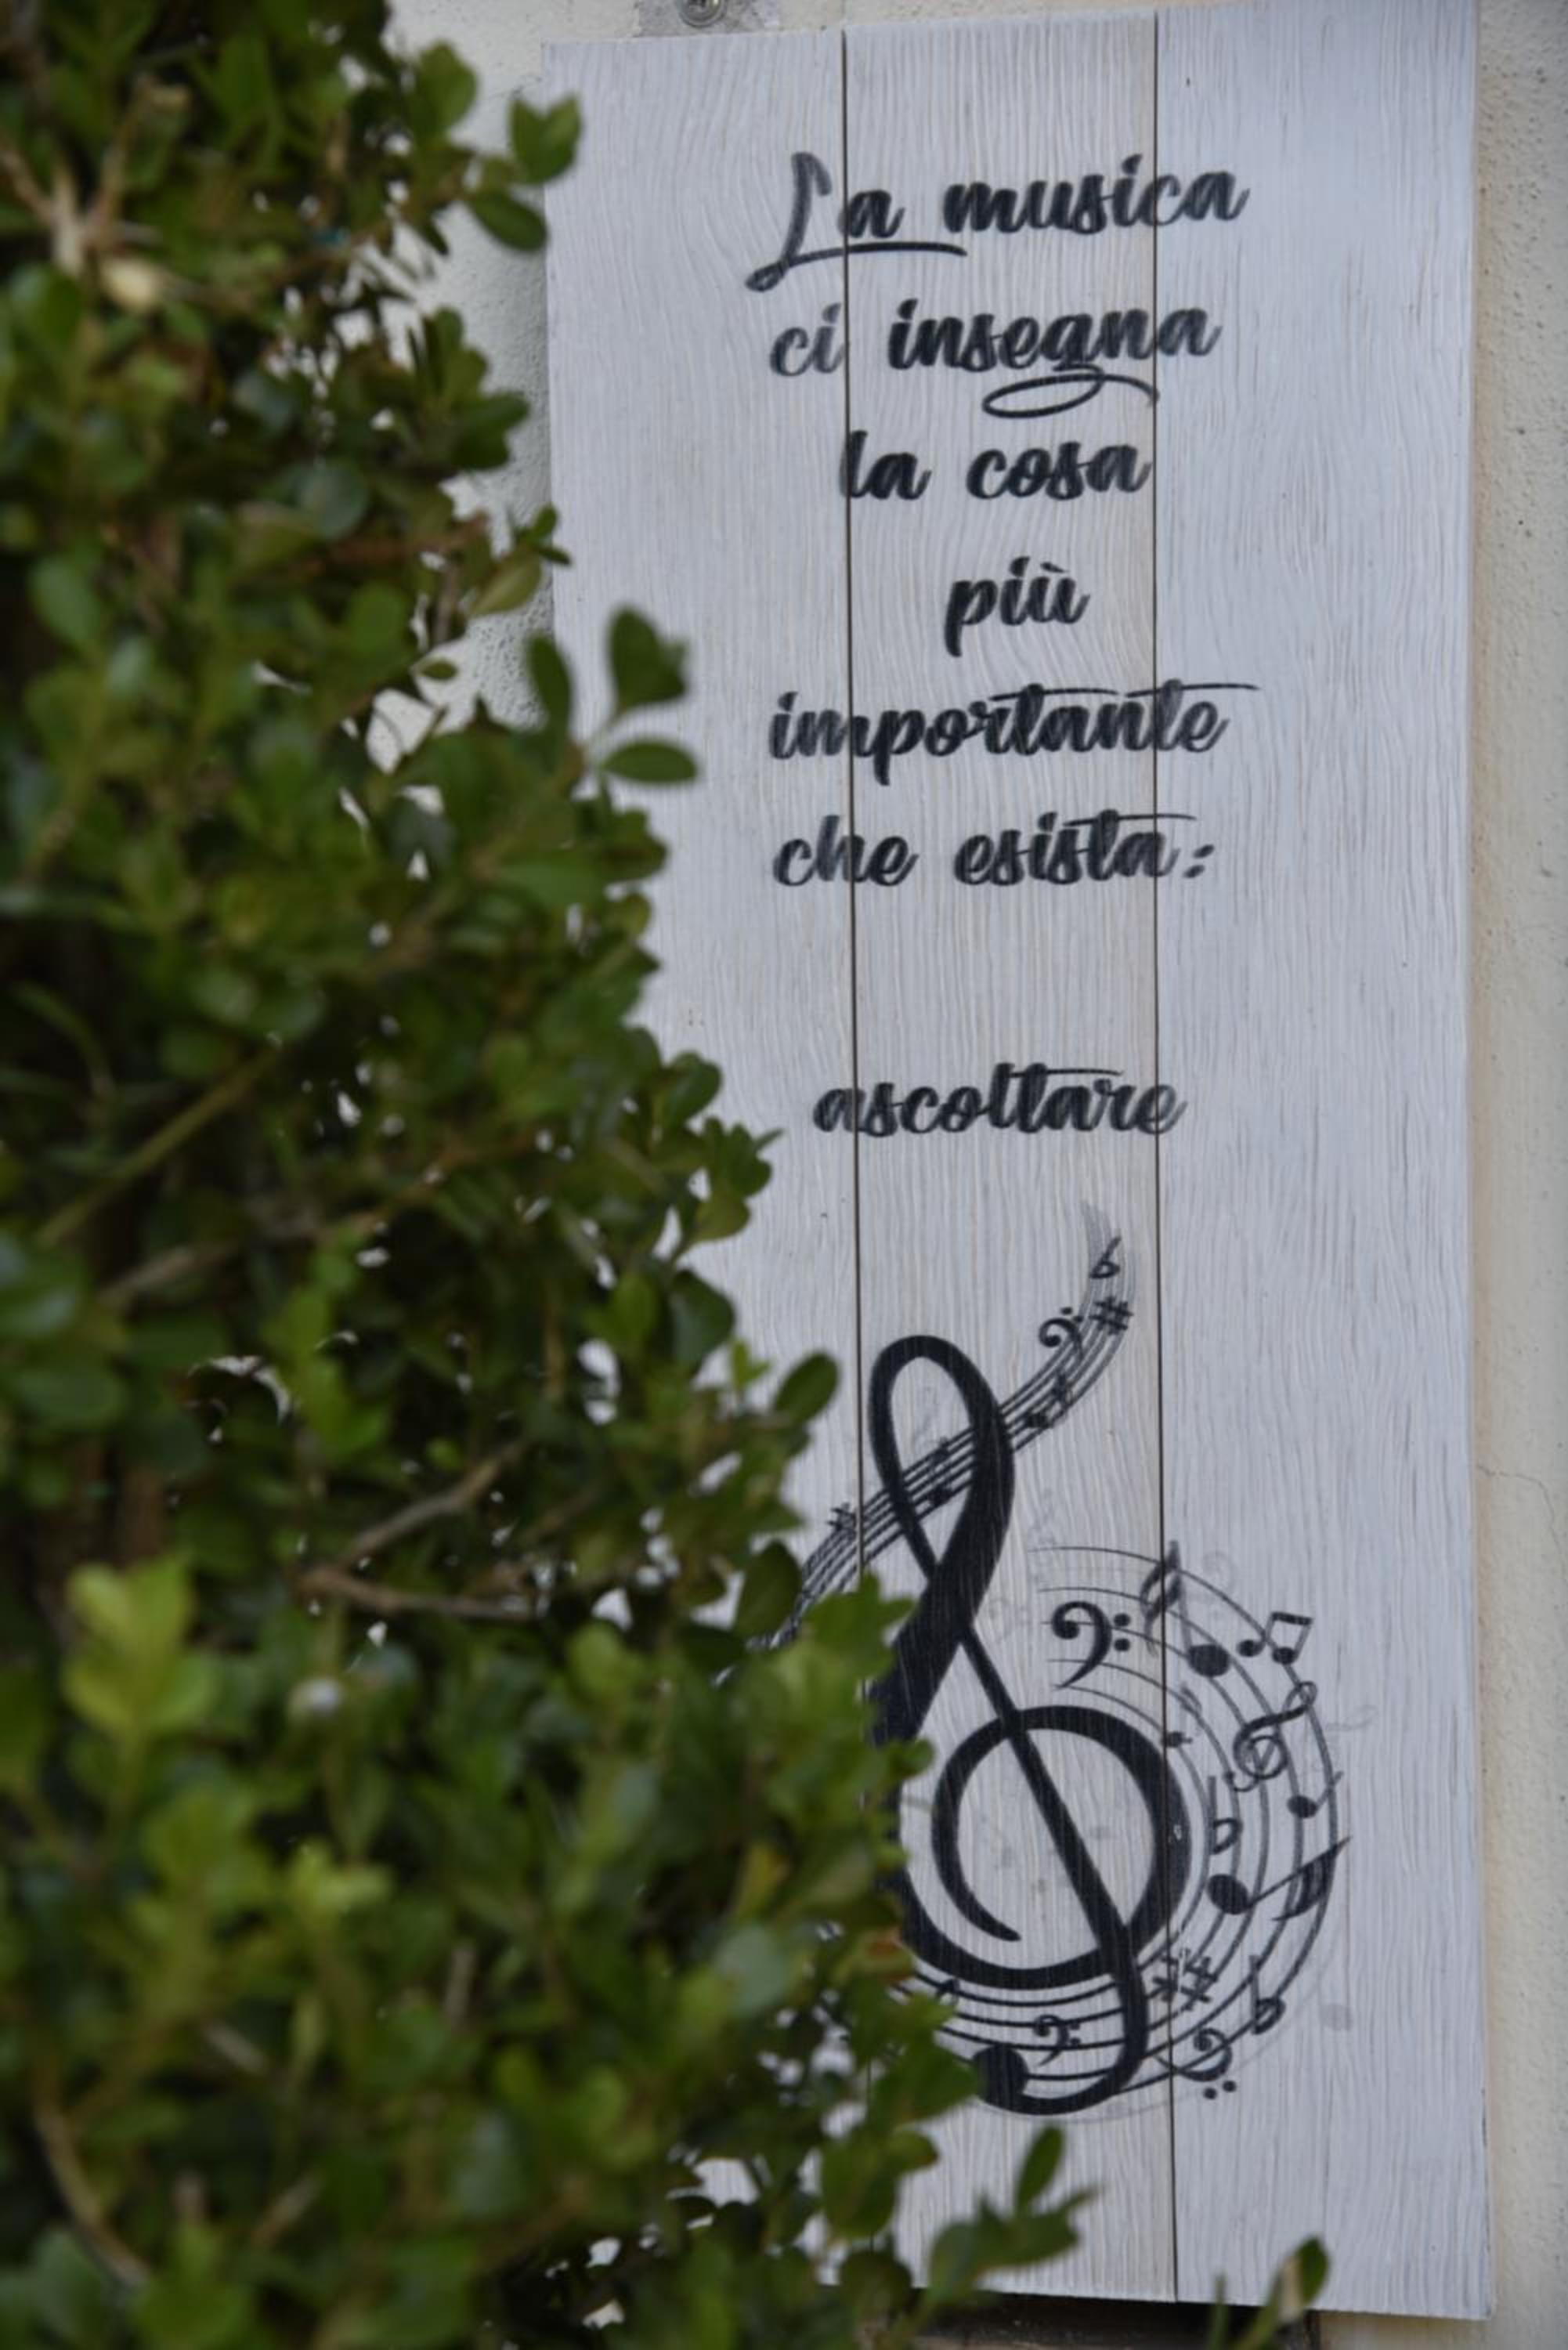 La musica
ci insegna
la cosa
più
importante
che esista:
ascoltare